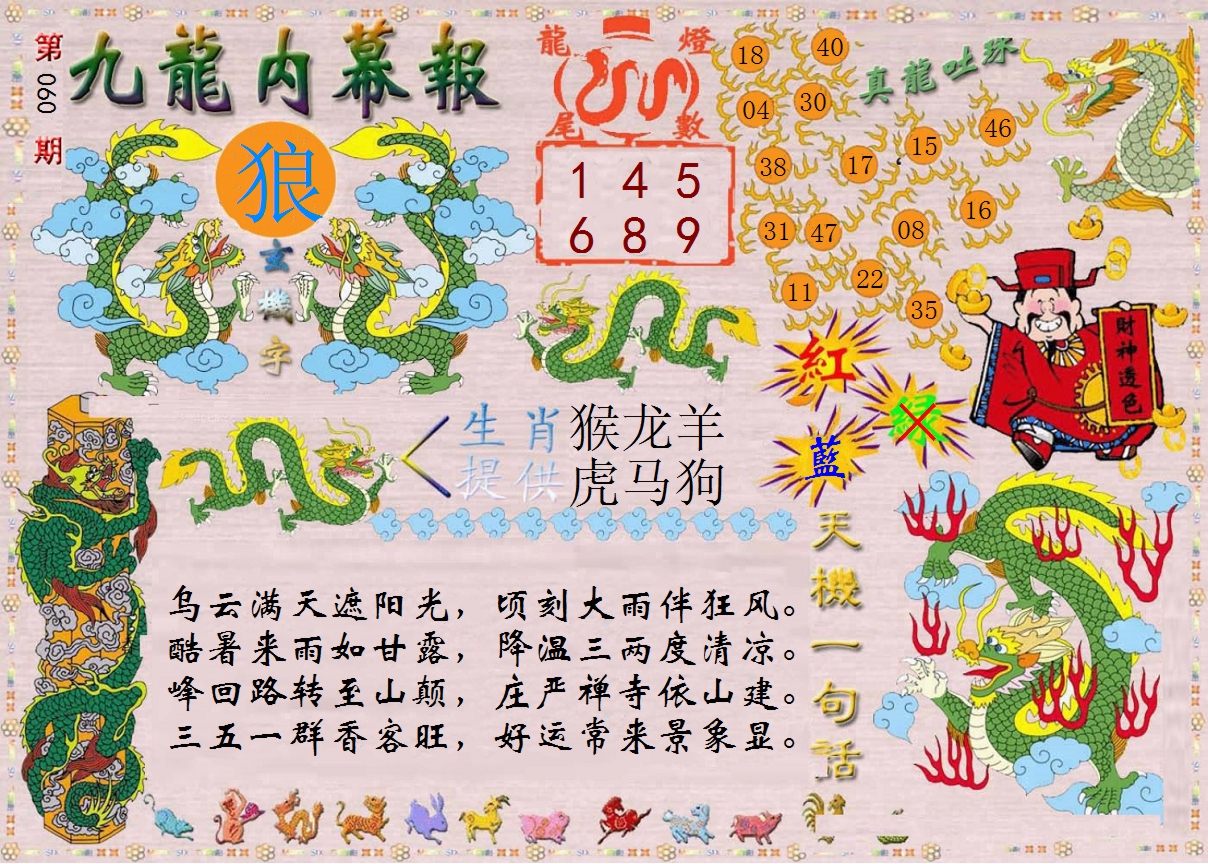 第090期
九龍内幕報
狼
玄機字
龍燈尾數
1 4 5
6 8 9
真龍吐珠
18 40
04 30
38 17 15 46
31 47 08 16
11 22 35
紅
绿
藍
財神透色
生肖提供
猴龙羊
虎马狗
天機一句話
乌云满天遮阳光，顷刻大雨伴狂风。
酷暑来雨如甘露，降温三两度清凉。
峰回路转至山颠，庄严禅寺依山建。
三五一群香客旺，好运常来景象显。